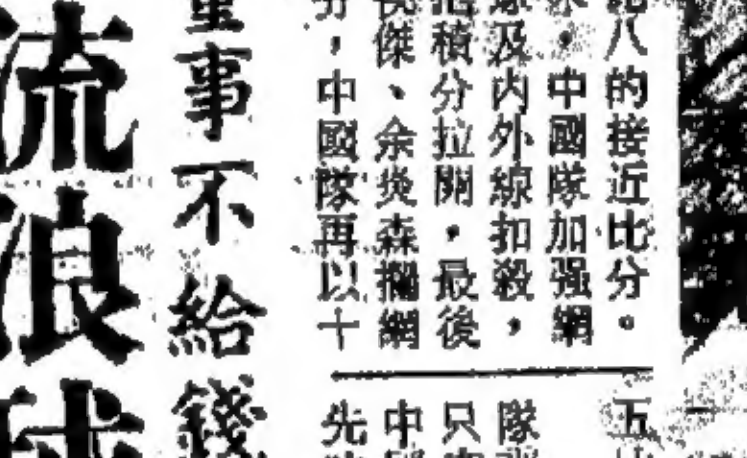 八的接近比分。
，中國隊加强網
及內外線扣殺，
積分拉開，最後
傑、余炎森攔網
，中國隊再以十
五
隊
只
中
先
董事不給錢
流浪球